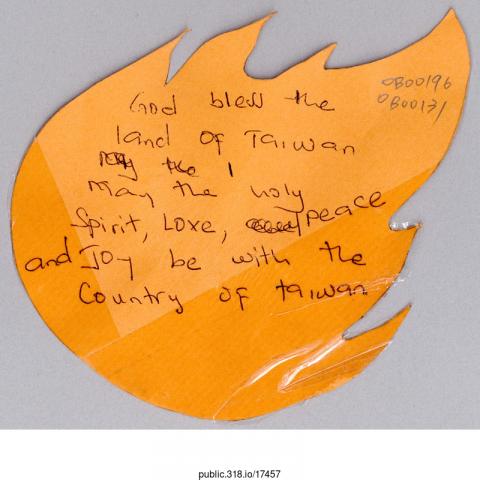 0B00196
0B00131
God bless the
land of Taiwan
May the
May the holy
Spirit, Love, peace
and Joy be with the
Country of taiwan
public.318.io/17457